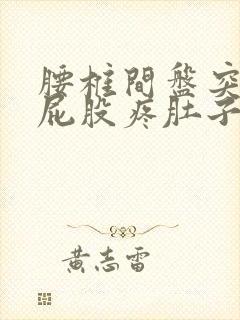 腰柱間盤突
屁股疼肚子
黃志雷